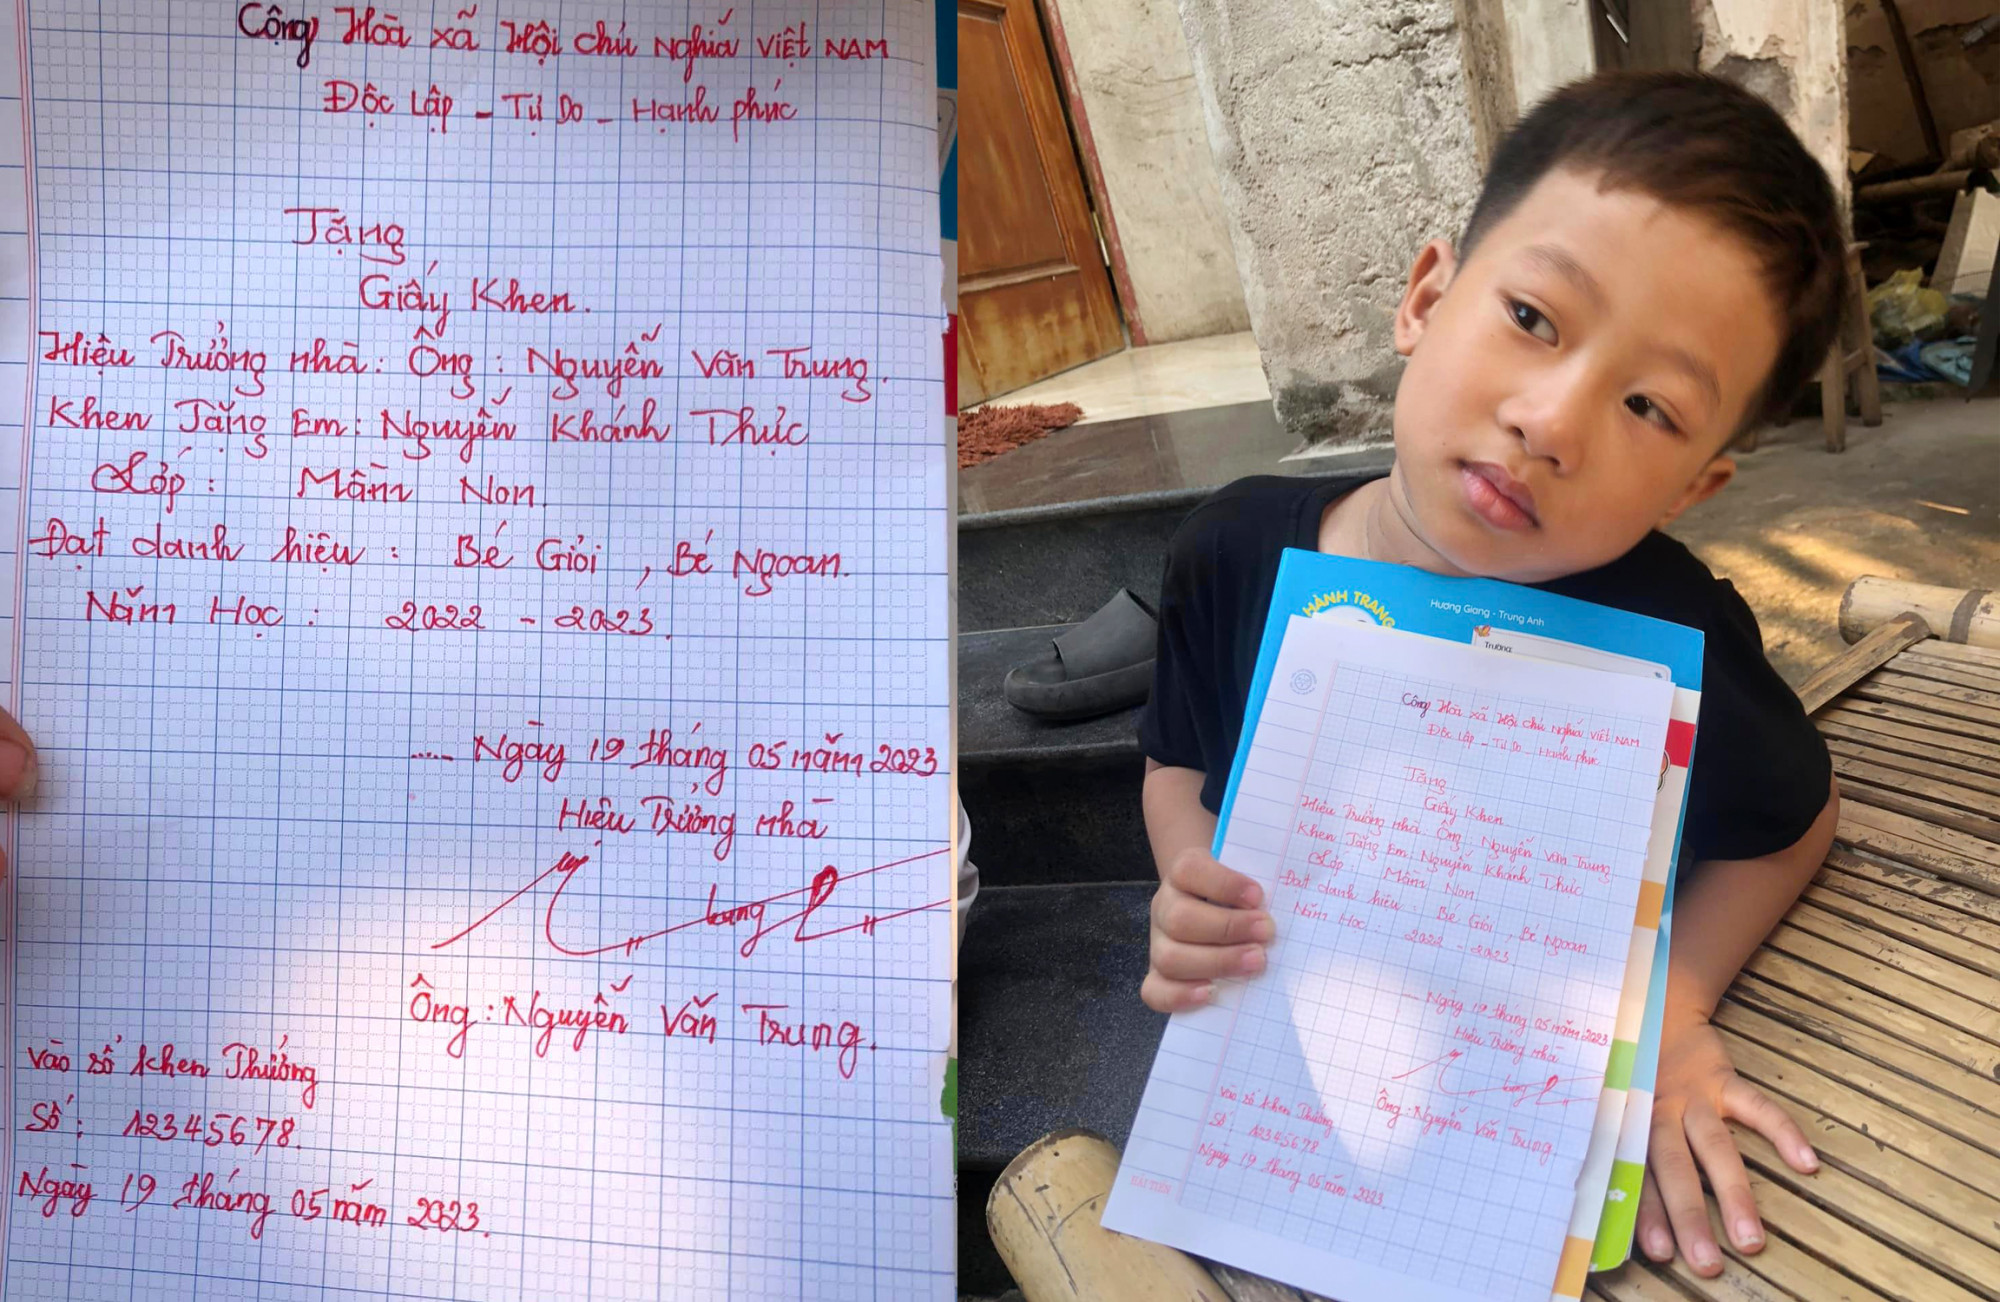 Cộng Hòa xã Hội chủ Nghĩa Việt NAM
Độc Lập - Tự Do - Hạnh phúc
Tặng
Giấy Khen.
Hiệu Trưởng nhà: Ông: Nguyễn Văn Trung.
Khen Tặng Em: Nguyễn Khánh Thức
Lớp: Mầm Non.
Đạt danh hiệu: Bé Giỏi, Bé Ngoan.
Năm Học: 2022 - 2023.
..... Ngày 19 tháng 05 năm 2023
Hiệu Trưởng nhà
Ông: Nguyễn Văn Trung.
vào sổ khen Thưởng
Số: 12345678.
Ngày 19 tháng 05 năm 2023.
HÀNH TRANG
Hương Giang - Trung Anh
Trường:
Cộng Hòa xã Hội chủ Nghĩa Việt NAM
Độc Lập - Tự Do - Hạnh phúc
Tặng
Giấy Khen
Hiệu Trưởng nhà Ông: Nguyễn Văn Trung
Khen Tặng Em: Nguyễn Khánh Thức
Lớp: Mầm Non
Đạt danh hiệu: Bé Giỏi, Bé Ngoan
Năm Học: 2022 - 2023
Ngày 19 tháng 05 năm 2023
Hiệu Trưởng nhà
Ông: Nguyễn Văn Trung
vào sổ khen Thưởng
Số: 12345678
Ngày 19 tháng 05 năm 2023.
HẢI TIẾN